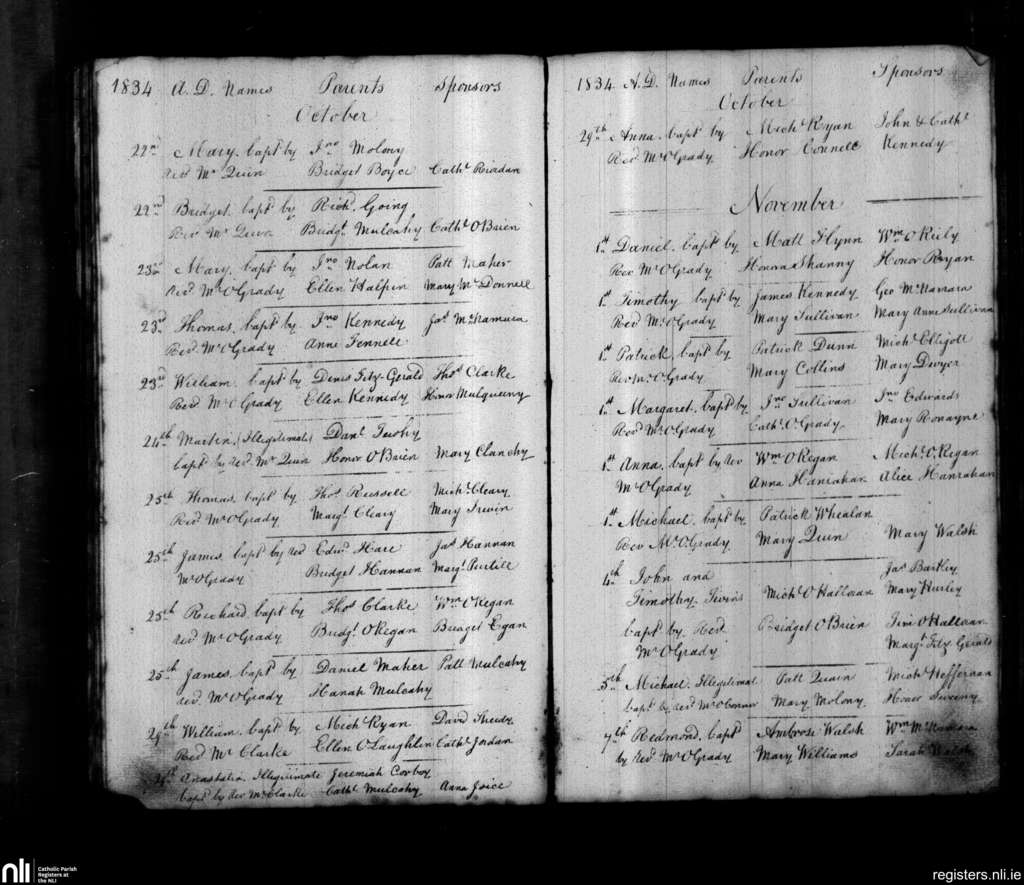 1834 A. D. Names Parents Sponsors
October
22nd Mary. bapt by Jno Molony
Revd Mr Quin Bridget Boyce Cathe Riordan
22nd Bridget. bapt by Rich. Going
Rev Mr Quin Bridgt Mulcahy Cathe O'Brien
23rd Mary. bapt by Jno Nolan Patt Maher
Revd Mr O'Grady Ellen Halpin Mary McDonnell
23rd Thomas. bapt by Jno Kennedy Jas McNamara
Revd Mr O'Grady Anne Fennell
23rd William. bapt by Denis Fitz-Gerald Thos Clarke
Revd Mr O'Grady Ellen Kennedy Honor Mulqueeny
24th Martin, Illegitimate Danl Tuohy
bapt by Revd Mr Quin Honor O'Brien Mary Clanchy
25th Thomas bapt by Thos Russell Michl Cleary
Revd Mr O'Grady Margt Cleary Mary Irwin
25th James bapt by Revd Edwd Hare Jas Hannan
Mr O'Grady Bridget Hannan Margt Purtill
25th Richard bapt by Thos Clarke Wm O'Regan
Revd Mr O'Grady Bridgt O'Regan Bridget Egan
25th James, bapt by Daniel Maher Patt Mulcahy
Revd Mr O'Grady Hanah Mulcahy
29th William, bapt by Mich Ryan David Sheedy
Revd Mr Clarke Ellen O'Laughlin Cathe Jordan
Anastatia Illegitimate Jeremiah Corboy
bapt by Rev Mr Clarke Cathe Mulcahy Anna Joice
1834 A. D. Names Parents Sponsors
October
29th Anna. bapt by Michl Ryan John & Cathe
Revd Mr O'Grady Honor Connell Kennedy
November
1st Daniel. bapt by Matt Flynn Wm O'Reily
Revd Mr O'Grady Honora Shanny Honor Ryan
1st Timothy bapt by James Kennedy Geo McNamara
Revd Mr O'Grady Mary Sullivan Mary Anne Sullivan
1st Patrick, bapt by Patrick Dunn Michl Elligott
Rev Mr O'Grady Mary Collins Mary Dwyer
1st Margaret. bapt by Jno Sullivan Jno Edwards
Revd Mr O'Grady Cathe O'Grady Mary Ronayne
1st Anna, bapt by Rev Wm O'Regan Michl O'Regan
Mr O'Grady Anna Hanrahan Alice Hanrahan
1st Michael. bapt by Patrick Whealan
Rev Mr O'Grady Mary Quin Mary Walsh
4th John and Jas Bartley
Timothy, Twins Michl O'Halloran Mary Hurley
bapt by Revd Bridget O'Brien Jim O'Halloran
Mr O'Grady Margt Fitz Gerald
5th Michael Illegitimate Patt Quain Michl Heffernan
bapt by Revd Mr O'Connor Mary Molony Honor Sweeny
7th Redmond, bapt Ambrose Walsh Wm McNamara
by Revd Mr O'Grady Mary Williams Sarah Walsh
nli
Catholic Parish
Registers at
the NLI
registers.nli.ie